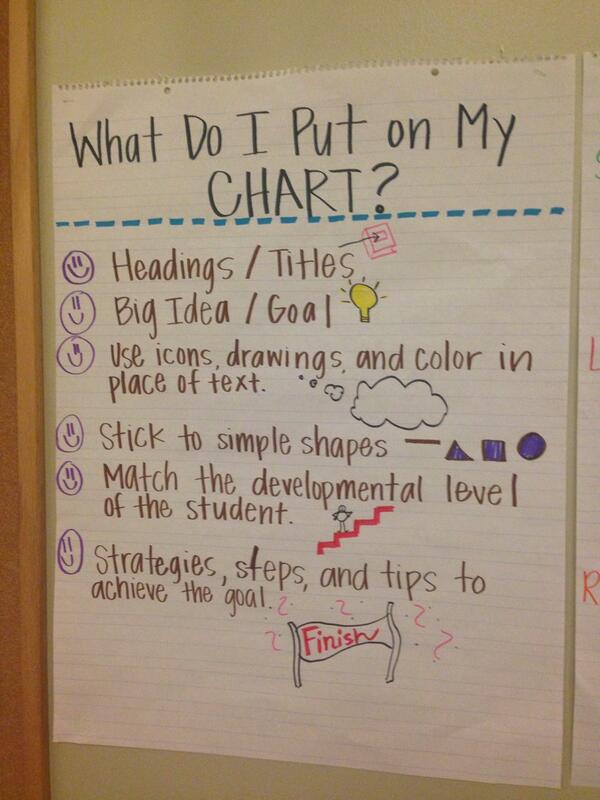 What Do I Put on My
CHART?
Headings / Titles
Big Idea / Goal
Use icons, drawings, and color in
place of text.
Stick to simple shapes
Match the developmental level
of the student.
Strategies, steps, and tips to
achieve the goal.
Finish
L
R